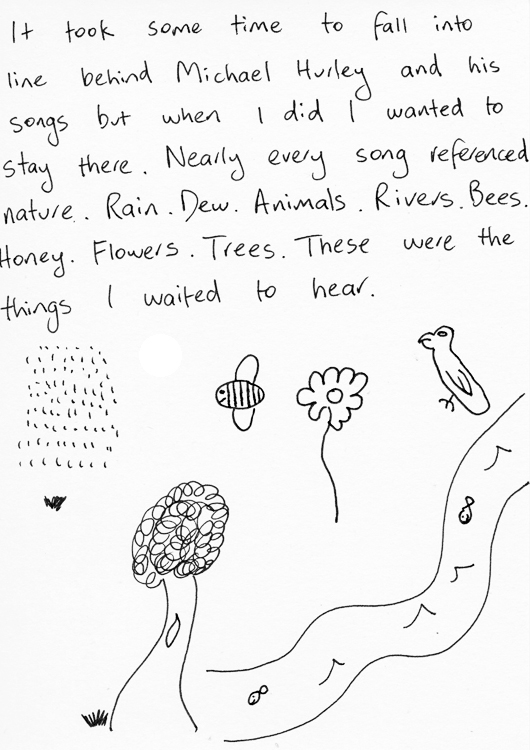 It took some time to fall into
line behind Michael Hurley and his
songs but when I did I wanted to
stay there. Nearly every song referenced
nature. Rain. Dew. Animals. Rivers. Bees.
Honey. Flowers. Trees. These were the
things I waited to hear.